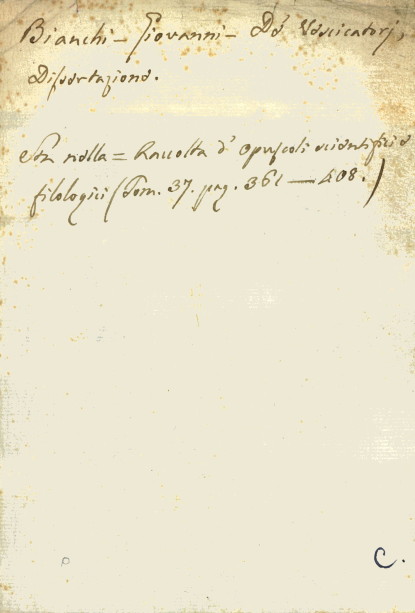 Bianchi - Giovanni - De' Vescicatorj,
Dissertazione.
Sta nella = Raccolta d' opuscoli scientifici e
filologici (Tom. 37. pag. 361 — 408.)
C.